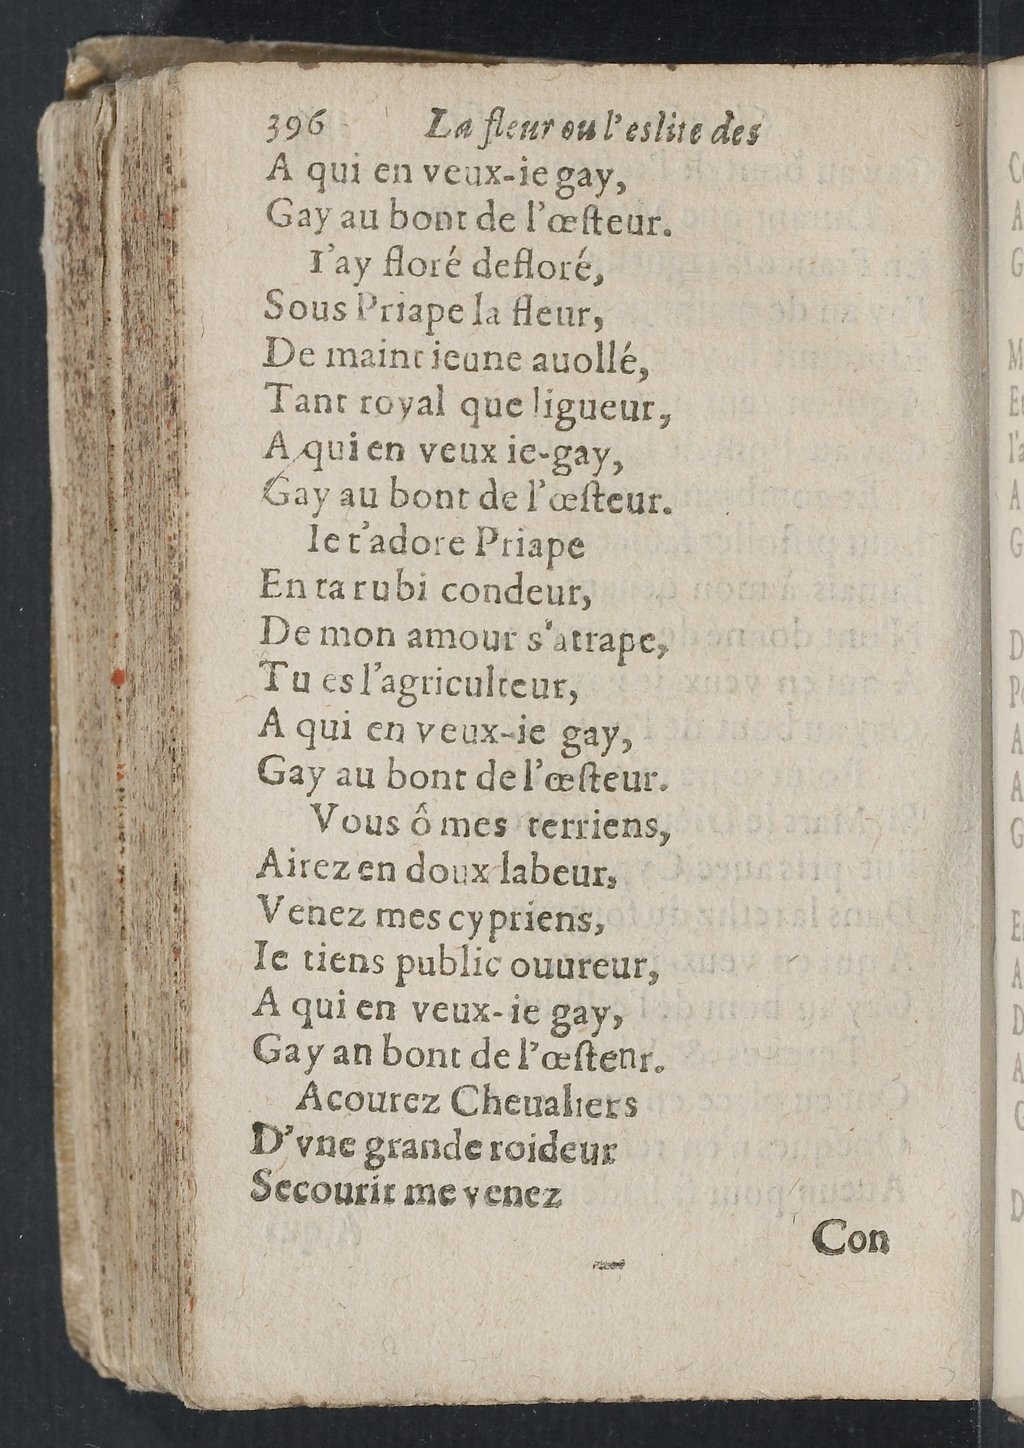 396 La fleur ou l'eslite des
A qui en veux-ie gay,
Gay au bont de l'œſteur.
I'ay floré defloré,
Sous Priape la fleur,
De maint ieune auollé,
Tant royal que ligueur,
A qui en veux ie-gay,
Gay au bont de l'œſteur.
Ie t'adore Priape
En ta rubi condeur,
De mon amour s'atrape,
Tu es l'agriculteur,
A qui en veux-ie gay,
Gay au bont de l'œſteur.
Vous ô mes terriens,
Airez en doux labeur,
Venez mes cypriens,
Ie tiens public ouureur,
A qui en veux-ie gay,
Gay an bont de l'œſtenr.
Acourez Cheualiers
D'vne grande roideur
Secourir me venez
Con